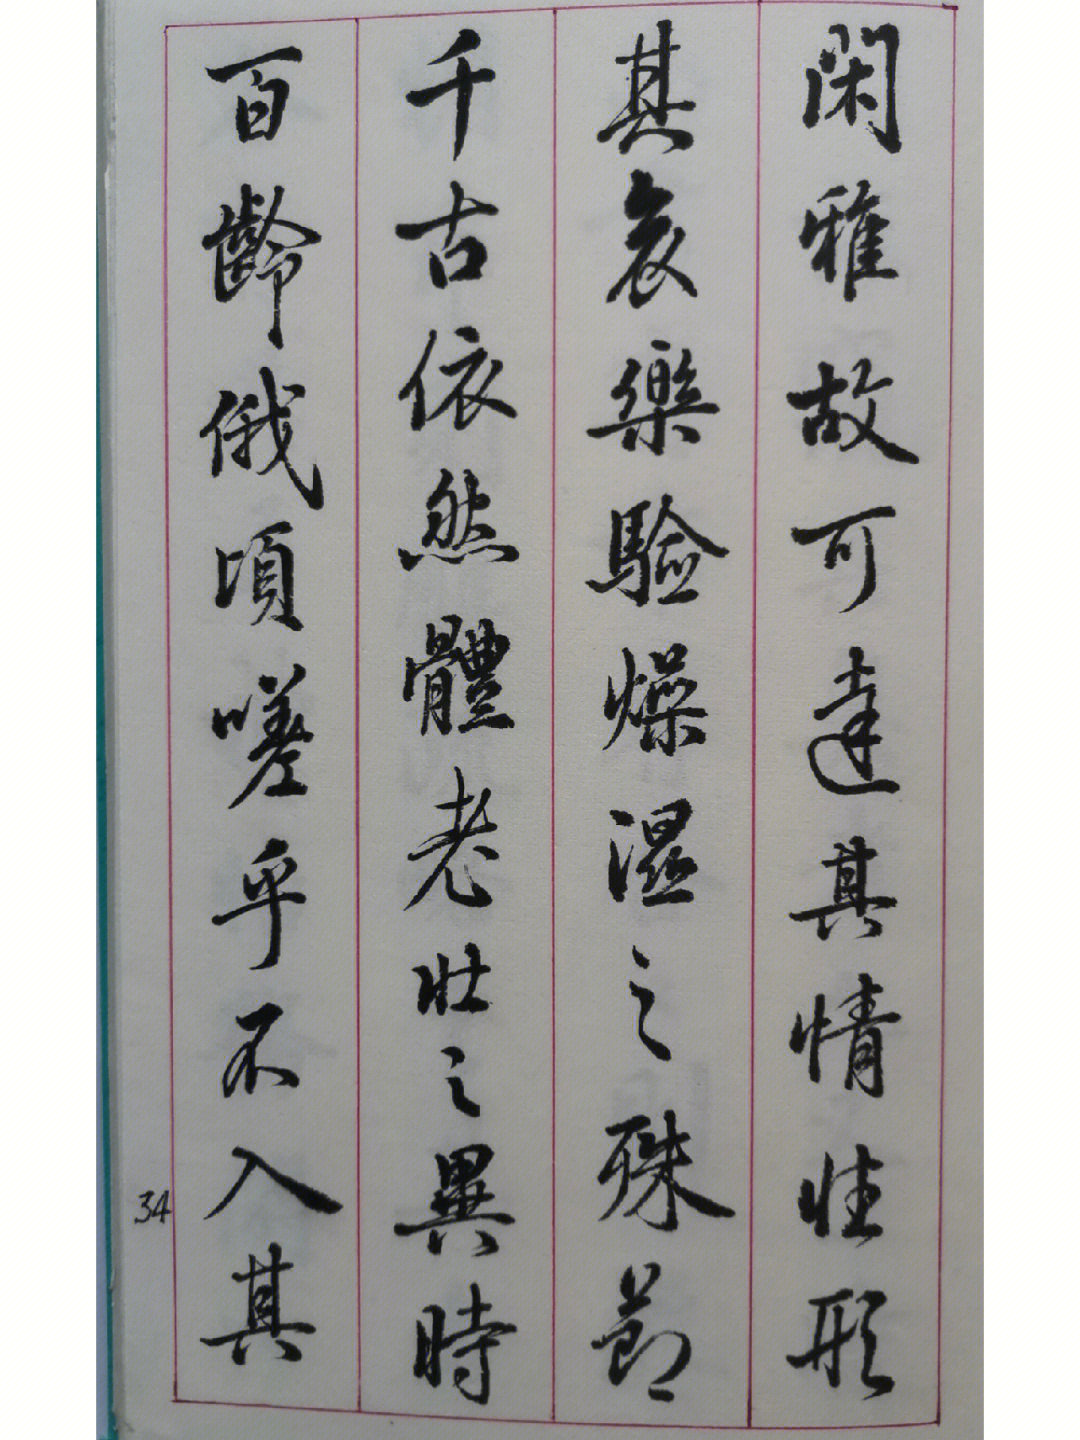 閑雅故可達其情性形
其哀樂驗燥濕之殊節
千古依然體老壯之異時
百齡俄頃嗟乎不入其
34